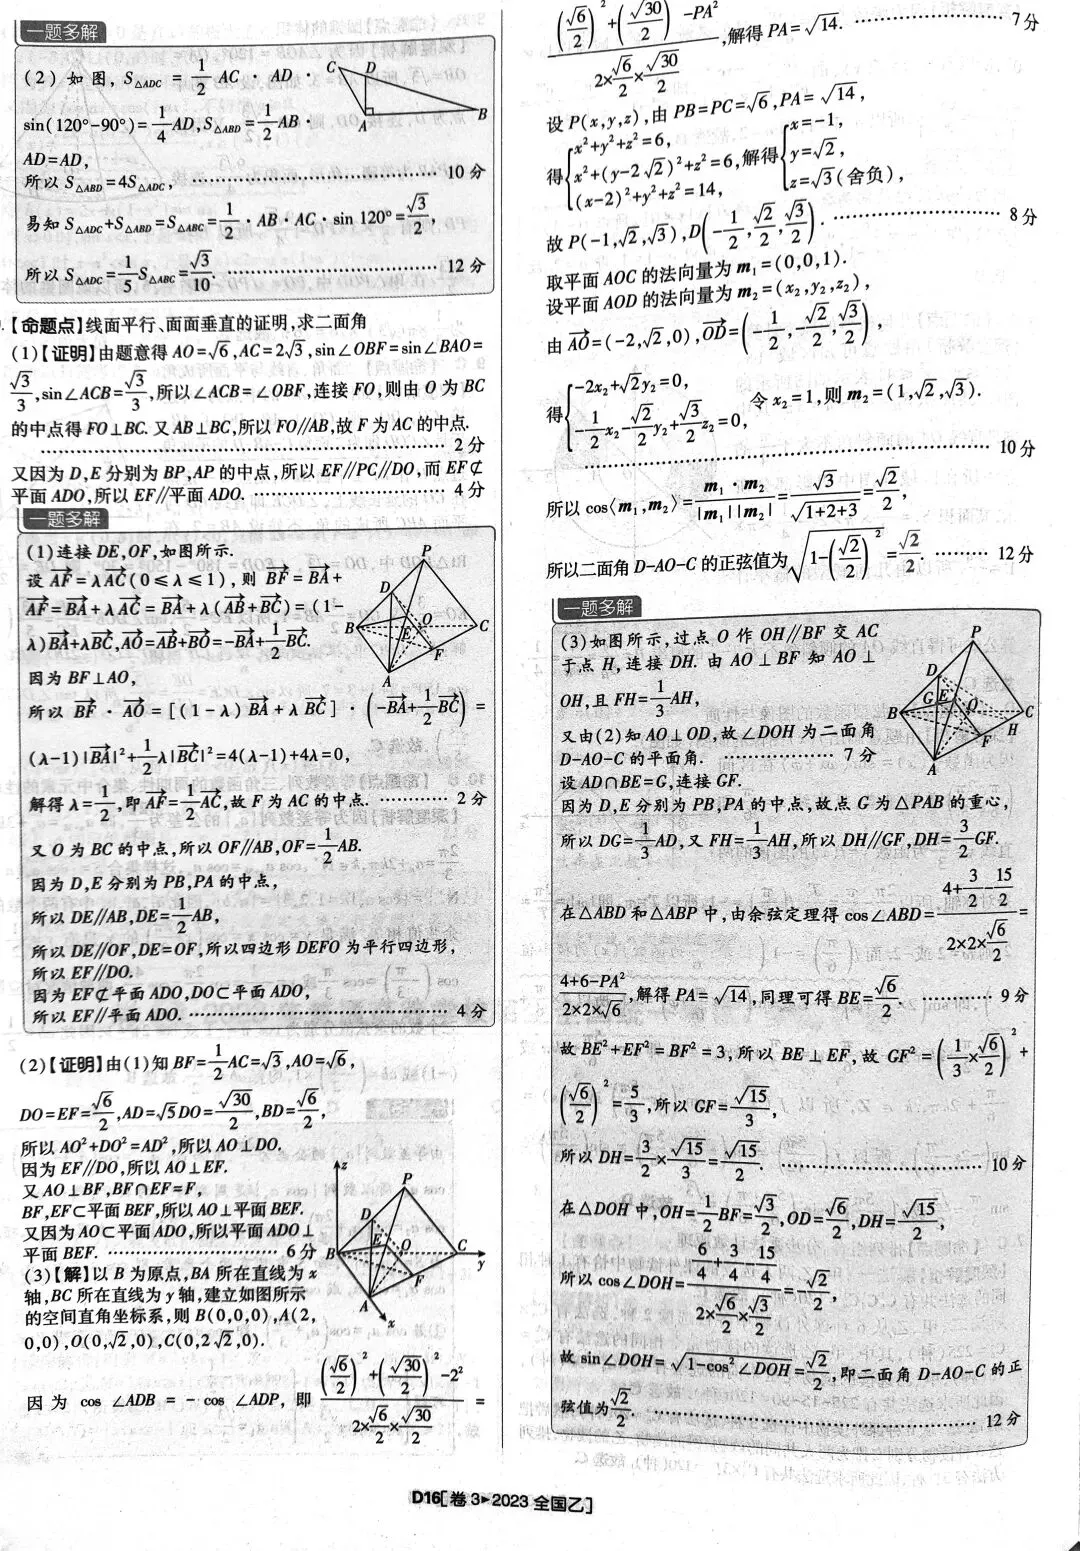 一题多解
(2) 如图, S△ADC = 1/2 AC · AD ·
sin(120°-90°)=1/4AD, S△ABD=1/2AB ·
AD=AD,
所以 S△ABD=4S△ADC, …… 10分
易知 S△ADC+S△ABD=S△ABC=1/2 · AB · AC · sin 120°=√3/2,
所以 S△ADC=1/5S△ABC=√3/10. …… 12分
C D A B
【命题点】线面平行、面面垂直的证明,求二面角
(1)【证明】由题意得 AO=√6,AC=2√3,sin∠OBF=sin∠BAO=
√3/3,sin∠ACB=√3/3,所以∠ACB=∠OBF,连接 FO,则由 O 为 BC
的中点得 FO⊥BC. 又 AB⊥BC,所以 FO//AB,故 F 为 AC 的中点.
…… 2分
又因为 D,E 分别为 BP,AP 的中点,所以 EF//PC//DO,而 EF⊄
平面 ADO,所以 EF//平面 ADO. …… 4分
一题多解
(1)连接 DE,OF,如图所示.
设 AF→=λAC→(0≤λ≤1),则 BF→=BA→+
AF→=BA→+λAC→=BA→+λ(AB→+BC→)=(1-
λ)BA→+λBC→,AO→=AB→+BO→=-BA→+1/2BC→.
因为 BF⊥AO,
所以 BF→ · AO→ = [(1-λ)BA→+λBC→] · (-BA→+1/2BC→) =
(λ-1)|BA→|²+1/2λ|BC→|²=4(λ-1)+4λ=0,
解得 λ=1/2,即 AF→=1/2AC→,故 F 为 AC 的中点. …… 2分
又 O 为 BC 的中点,所以 OF//AB,OF=1/2AB.
因为 D,E 分别为 PB,PA 的中点,
所以 DE//AB,DE=1/2AB,
所以 DE//OF,DE=OF,所以四边形 DEFO 为平行四边形,
所以 EF//DO.
因为 EF⊄平面 ADO,DO⊂平面 ADO,
所以 EF//平面 ADO. …… 4分
P D B E O C F A
(2)【证明】由(1)知 BF=1/2AC=√3,AO=√6,
DO=EF=√6/2,AD=√5DO=√30/2,BD=√6/2,
所以 AO²+DO²=AD²,所以 AO⊥DO.
因为 EF//DO,所以 AO⊥EF.
又 AO⊥BF,BF∩EF=F,
BF,EF⊂平面 BEF,所以 AO⊥平面 BEF.
又因为 AO⊂平面 ADO,所以平面 ADO⊥
平面 BEF. …… 6分
(3)【解】以 B 为原点,BA 所在直线为 x
轴,BC 所在直线为 y 轴,建立如图所示
的空间直角坐标系,则 B(0,0,0),A(2,
0,0),O(0,√2,0),C(0,2√2,0).
z P D E O B C y F A x
因为 cos ∠ADB = -cos ∠ADP, 即 ((√6/2)²+(√30/2)²-2²)/(2×√6/2×√30/2) =
((√6/2)²+(√30/2)²-PA²)/(2×√6/2×√30/2),解得 PA=√14. …… 7分
设 P(x,y,z),由 PB=PC=√6,PA=√14,
得{x²+y²+z²=6, x²+(y-2√2)²+z²=6, (x-2)²+y²+z²=14, 解得{x=-1, y=√2, z=√3(舍负),
故 P(-1,√2,√3),D(-1/2,√2/2,√3/2). …… 8分
取平面 AOC 的法向量为 m₁=(0,0,1).
设平面 AOD 的法向量为 m₂=(x₂,y₂,z₂),
由 AO→=(-2,√2,0),OD→=(-1/2,-√2/2,√3/2),
得{-2x₂+√2y₂=0, -1/2x₂-√2/2y₂+√3/2z₂=0, 令 x₂=1,则 m₂=(1,√2,√3).
…… 10分
所以 cos⟨m₁,m₂⟩=m₁·m₂/|m₁||m₂|=√3/√(1+2+3)=√2/2,
所以二面角 D-AO-C 的正弦值为√(1-(√2/2)²)=√2/2. …… 12分
一题多解
(3)如图所示,过点 O 作 OH//BF 交 AC
于点 H,连接 DH. 由 AO⊥BF 知 AO⊥
OH,且 FH=1/3AH,
又由(2)知 AO⊥OD,故∠DOH 为二面角
D-AO-C 的平面角. …… 7分
设 AD∩BE=G,连接 GF.
因为 D,E 分别为 PB,PA 的中点,故点 G 为△PAB 的重心,
所以 DG=1/3AD,又 FH=1/3AH,所以 DH//GF,DH=3/2GF.
在△ABD 和△ABP 中,由余弦定理得 cos∠ABD=(4+3/2-15/2)/(2×2×√6/2)=
(4+6-PA²)/(2×2×√6),解得 PA=√14,同理可得 BE=√6/2. …… 9分
故 BE²+EF²=BF²=3,所以 BE⊥EF,故 GF²=(1/3×√6/2)²+
(√6/2)²=5/3,所以 GF=√15/3,
所以 DH=3/2×√15/3=√15/2. …… 10分
在△DOH 中,OH=1/2BF=√3/2,OD=√6/2,DH=√15/2,
所以 cos∠DOH=(6/4+3/4-15/4)/(2×√6/2×√3/2)=-√2/2,
故 sin∠DOH=√(1-cos²∠DOH)=√2/2,即二面角 D-AO-C 的正
弦值为√2/2. …… 12分
P D G E O B C H F A
D16[卷 3▸2023 全国乙]